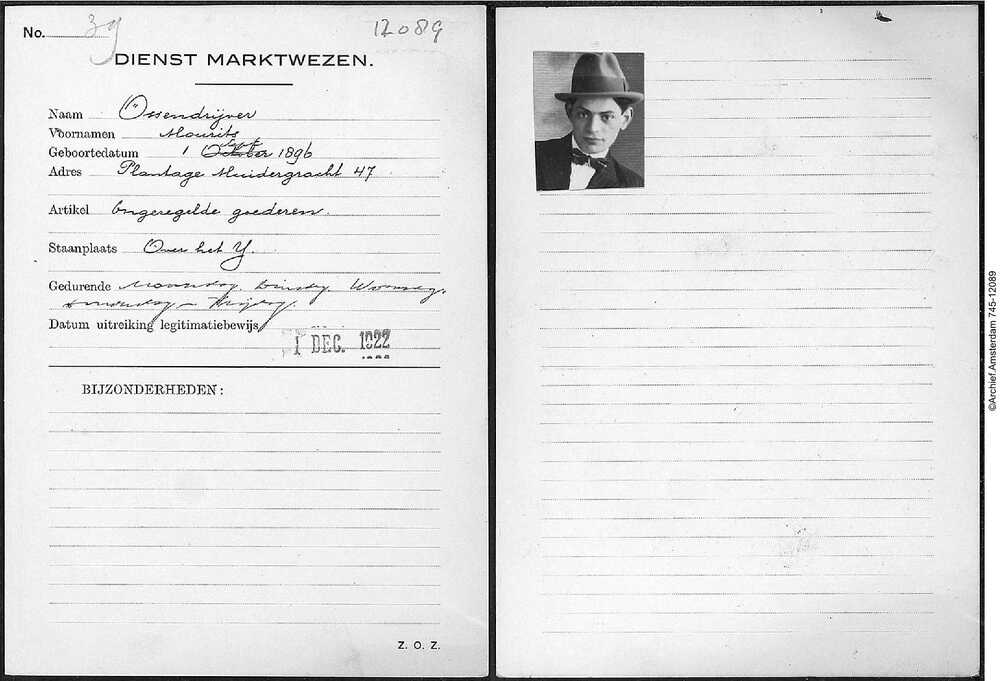 No. 39 12089
DIENST MARKTWEZEN.
Naam Ossendrijver
Voornamen Mourits
Sept
Geboortedatum 1 October 1896
Adres Plantage Muidergracht 47
Artikel Ongeregelde goederen.
Staanplaats Over het Y.
Gedurende Maandag, Dinsdag, Woensdag,
Donderdag – Vrijdag.
Datum uitreiking legitimatiebewijs
1 DEC. 1922
BIJZONDERHEDEN:
Z. O. Z.
©Archief.Amsterdam 745-12089